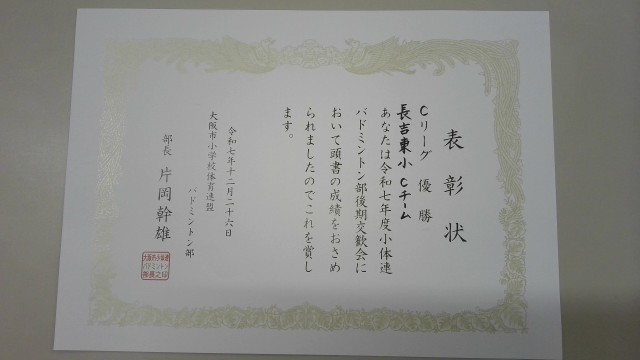 表彰状
Cリーグ 優勝
長吉東小 Cチーム
あなたは令和七年度小体連
バドミントン部後期交歓会に
おいて頭書の成績をおさめ
られましたのでこれを賞し
ます。
令和七年十二月二十六日
大阪市小学校体育連盟
バドミントン部
部長 片岡幹雄